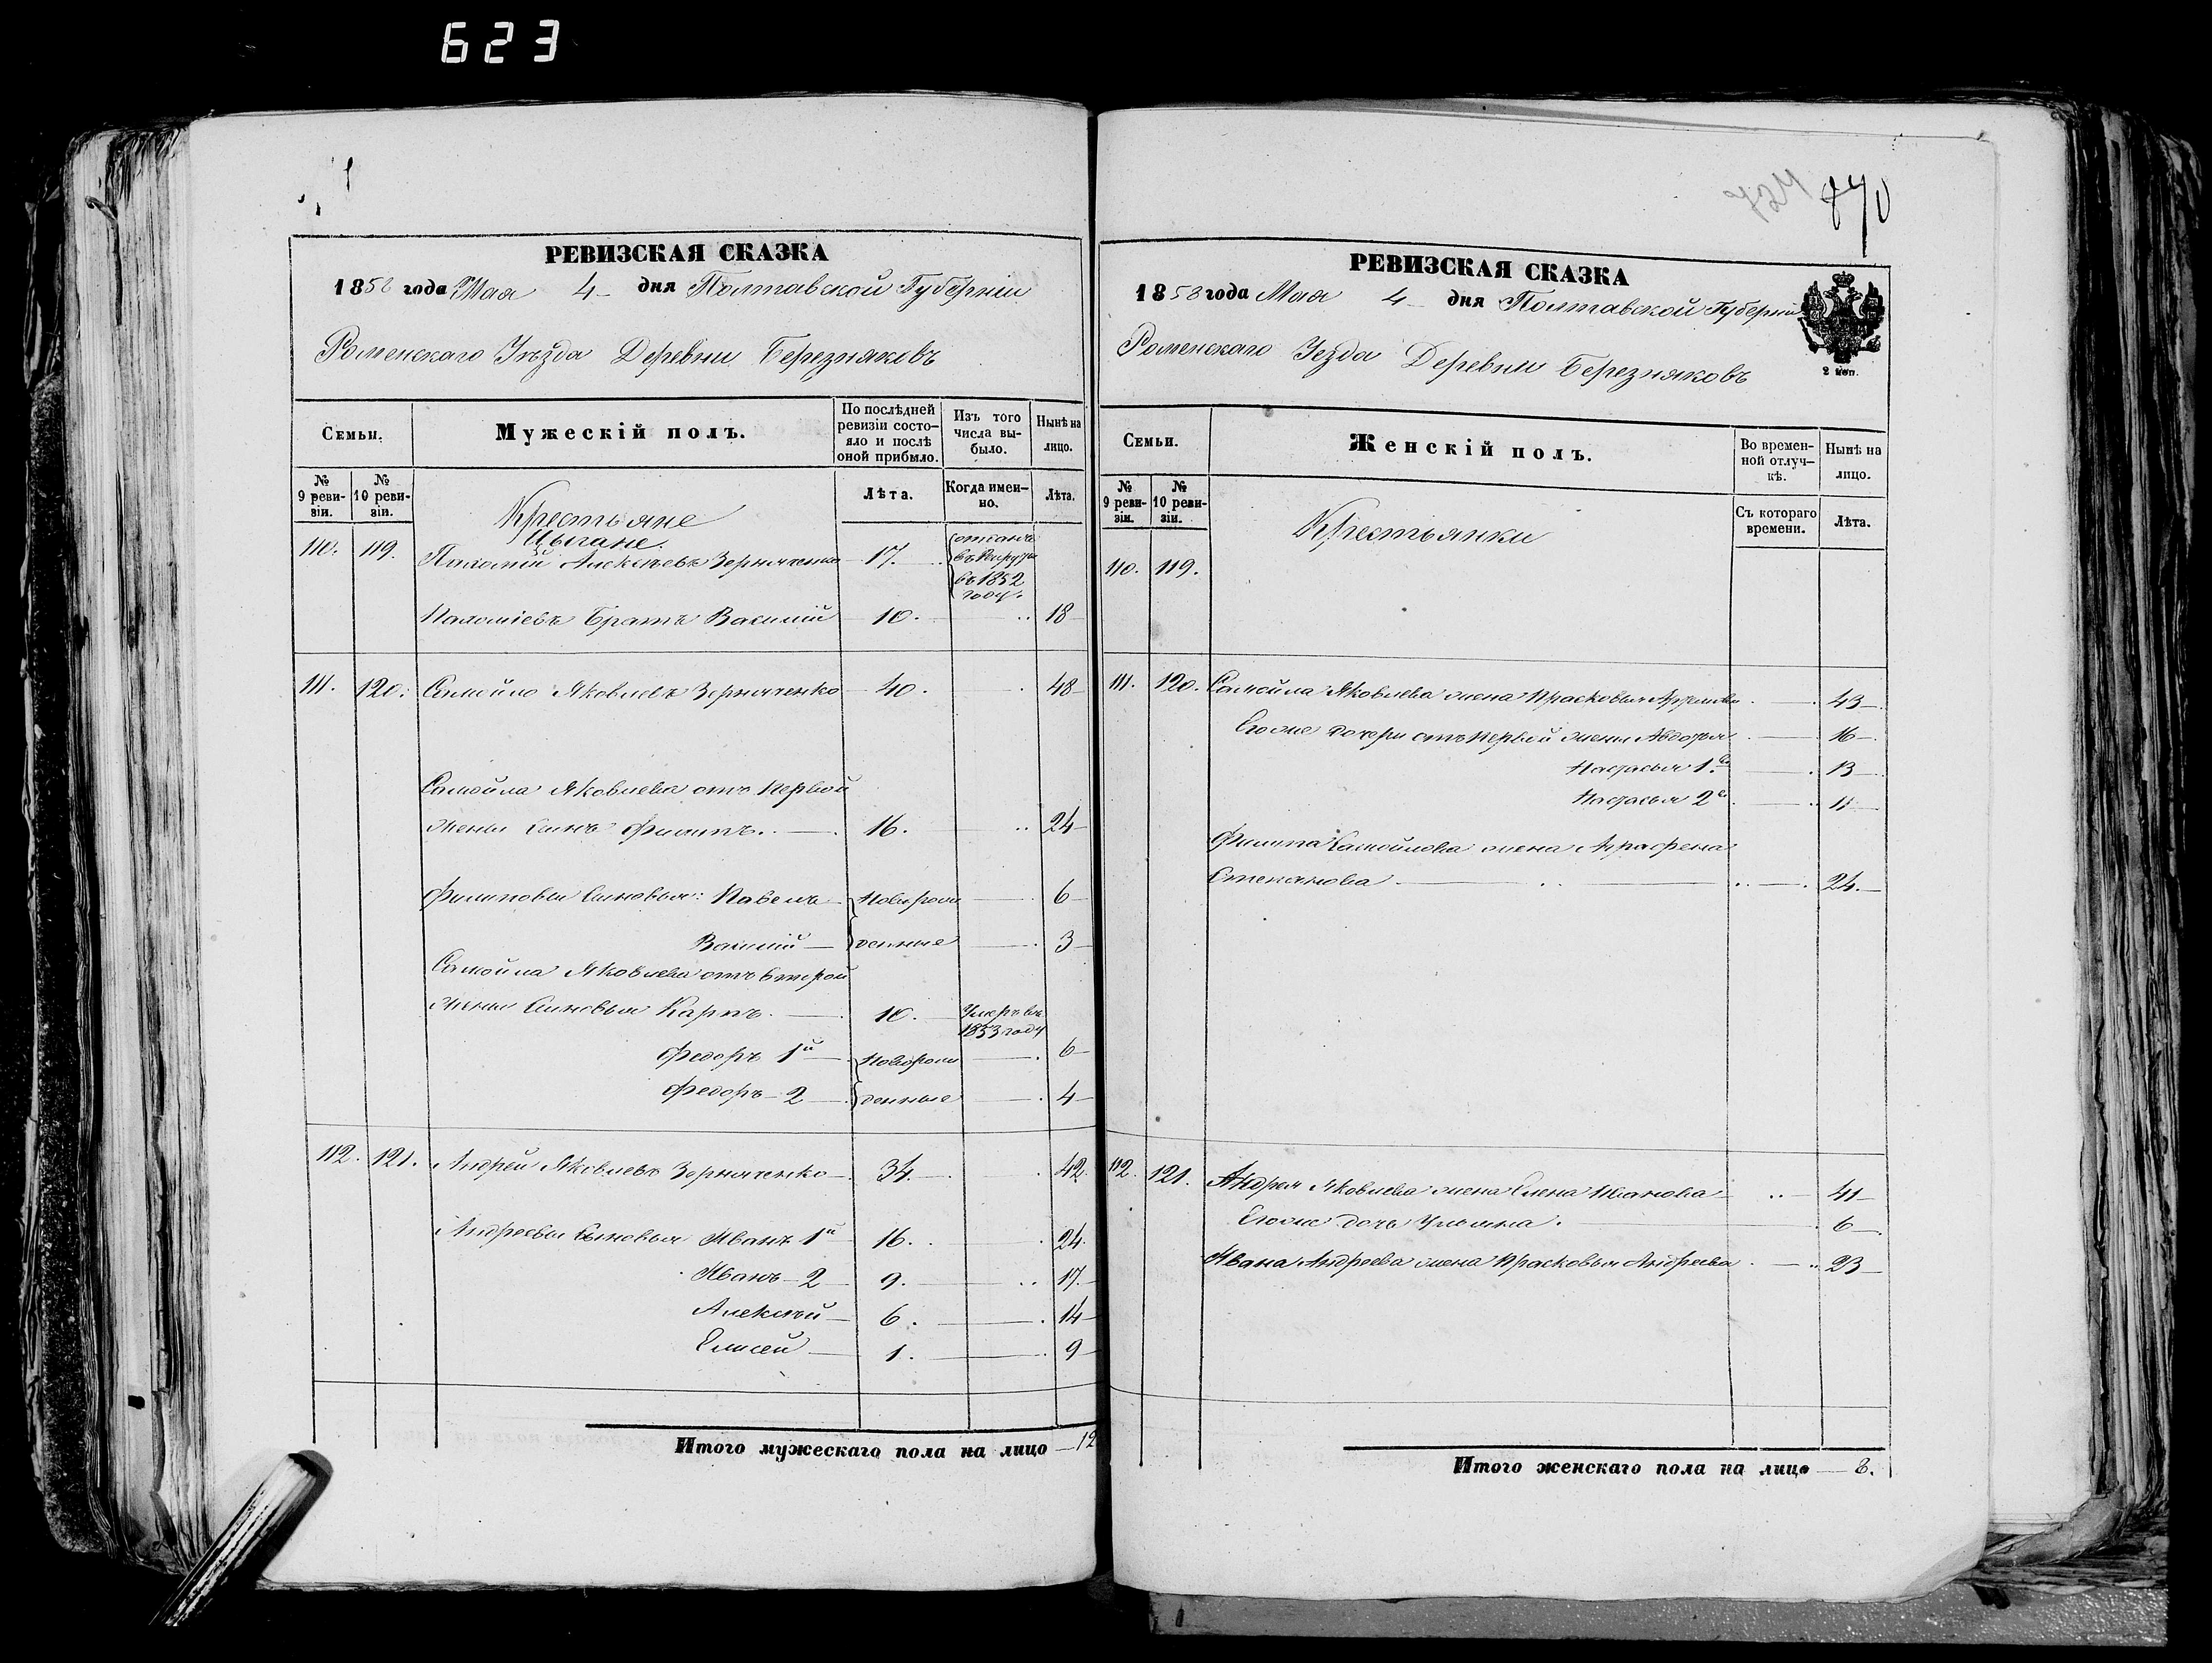 623
РЕВИЗСКАЯ СКАЗКА
1858 года Мая 4 дня Полтавской Губерніи
Роменскаго Уѣзда Деревни Березняковъ
Семьи.
Мужескій полъ.
По послѣдней ревизіи состо-
яло и послѣ
оной прибыло.
Изъ того
числа вы-
было.
Нынѣ на
лицо.
№ 9 реви-
зіи.
№ 10 реви-
зіи.
Лѣта.
Когда имен-
но.
Лѣта.
Крестьяне
Цыгане.
110. 119. Пахомій Алексѣевъ 17. отданъ
въ Рекруты
въ 1852
году.
Пахоміевъ Братъ Василій 10. 18
111. 120. Самойло Яковлевъ 40. 48
Самойла Яковлева отъ первой
жены Сынъ Филипъ. 16. 24
Филиповы Сыновья: Павелъ Новорож 6
Василій денные 3
Самойла Яковлева отъ второй
жены Сыновья Карпъ. 10. Умеръ въ
1853 году
Федоръ 1й Новорож 6
Федоръ 2 денные 4
112. 121. Андрей Яковлевъ 34. 42
Андреевы Сыновья Иванъ 1й 16. 24
Иванъ 2 9. 17
Алексѣй 6. 14
Елисей 1. 9
Итого мужескаго пола на лицо 12
724 870
РЕВИЗСКАЯ СКАЗКА
1858 года Мая 4 дня Полтавской Губерніи
Роменскаго Уезда Деревни Березняковъ
2 коп.
Семьи.
Женскій полъ.
Во времен-
ной отлуч-
кѣ.
Нынѣ на
лицо.
№ 9 реви-
зіи.
№ 10 реви-
зіи.
Съ котораго
времени.
Лѣта.
Крестьянки
110. 119.
111. 120. Самойла Яковлева жена Прасковья 43
Егоже дочери отъ первой жены Авдотья 16
Настасья 1я 13
Настасья 2я 11
Филипа Самойлова жена Аграфена
Степанова 24
112. 121. Андрея Яковлева жена Елена Иванова 41
Егоже дочь Ульяна. 6
Ивана Андреева жена Прасковья Андреева 23
Итого женскаго пола на лицо 8.